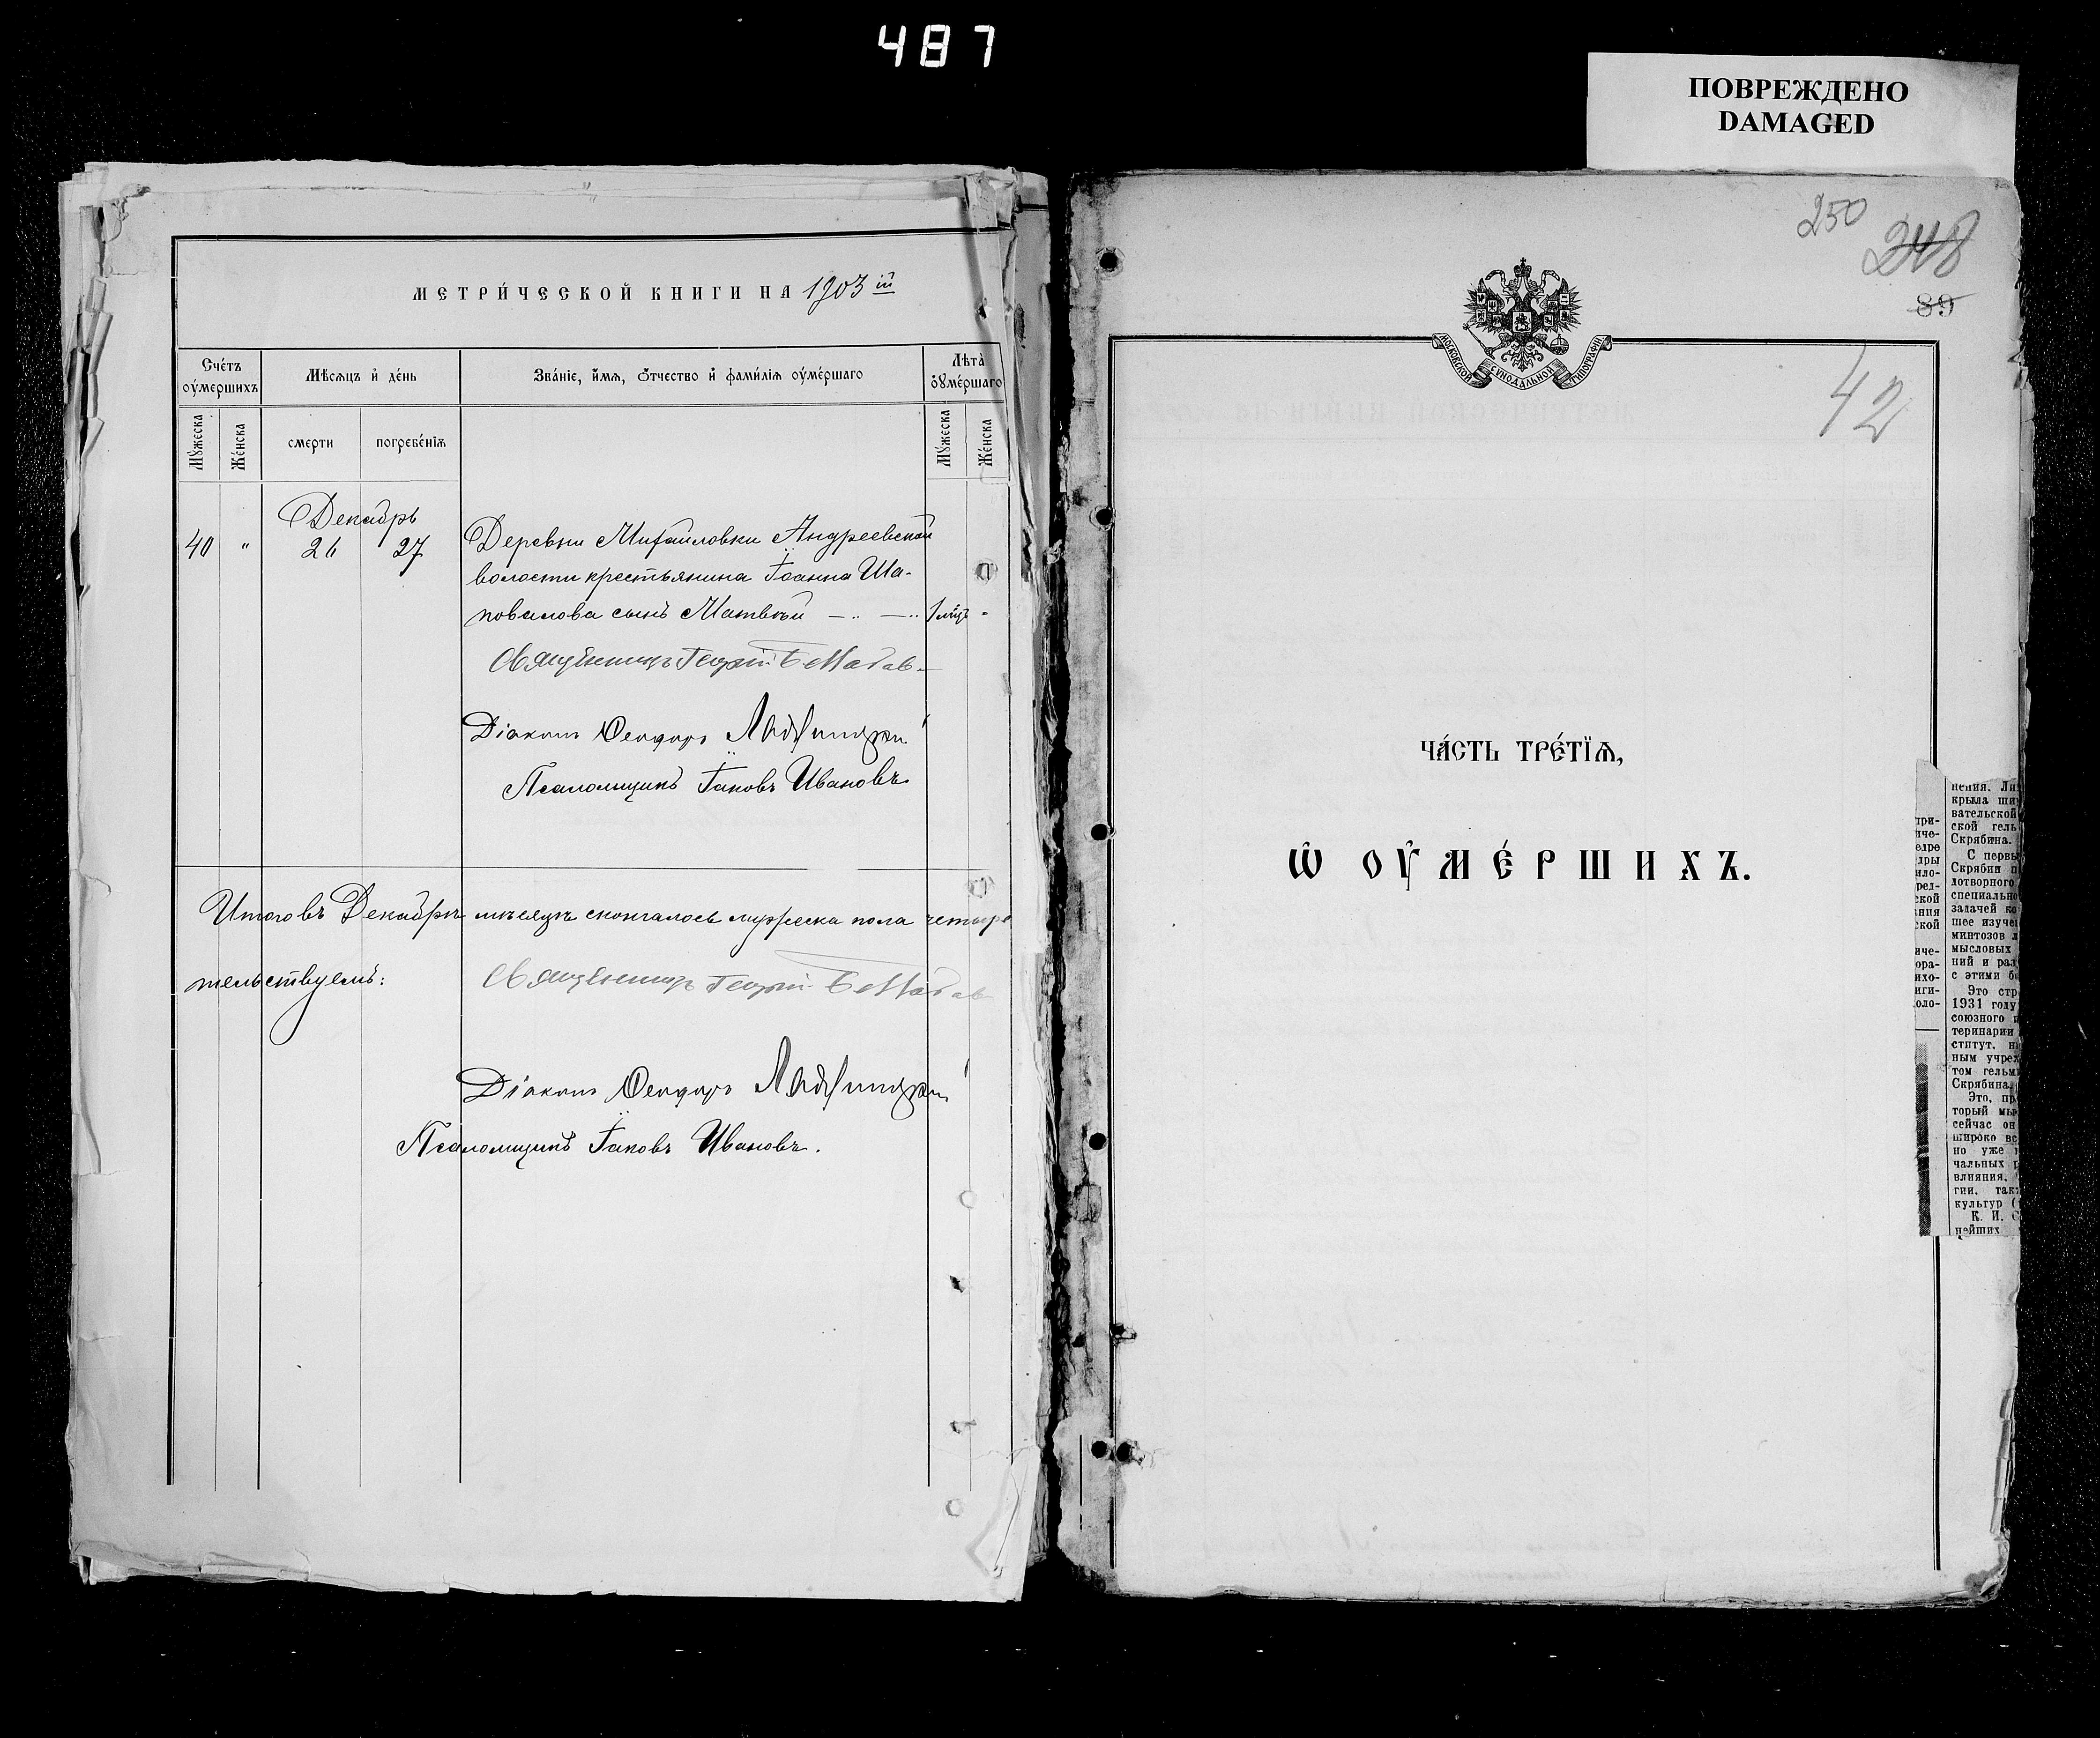 487
ПОВРЕЖДЕНО
DAMAGED
МЕТРИ́ЧЕСКОЙ КНИГИ НА 1903 ій
Сче́тъ ᲂу҆ме́ршихъ
Мѣ́сяцъ и҆ де́нь
Зва́нїе, и҆́мѧ, ѻ҆́тчество и҆ фами́лїѧ ᲂу҆ме́ршаго
Лѣта̀ ᲂу҆ме́ршаго
Мꙋ́жеска
Же́нска
смерти
погребе́нїѧ
Мꙋ́жеска
Же́нска
Декабрь
40 " 26 27 Деревни Михайловки Андреевской
волости крестьянина Іоанна Ша-
повалова сынъ Матвѣй — .. — .. 1 мѣц. "
Священникъ Георгій
Діаконъ Ѳеодоръ
Псаломщикъ Іаковъ Ивановъ
Итого въ Декабрѣ мѣсяцѣ скончалось мужеска пола четыре
тельствуемъ:
Священникъ Георгій
Діаконъ Ѳеодоръ
Псаломщикъ Іаковъ Ивановъ.
250
248
89
МОСКОВСКОЙ СУНОДАЛЬНОЙ ТИПОГРАФІИ
42
ЧА́СТЬ ТРЕ́ТЇѦ,
Ѽ ОУ҆МЕ́РШИХЪ.
при-
иче-
едре
дры
ило-
рел-
ской
ания
ской
иче-
ора-
ихо-
иги-
оло-
нения. Ли
крыла ши
вательской
ской гель
Скрябина.
С первы
Скрябин п
лотворного
специально
задачей ко
шее изучен
минтозов л
мысловых
ний и раз
с этими б
Это стр
1931 году
союзного п
теринарии
ститут, н
ным учреж
том гельми
Скрябина.
Это, пр
торый мы
сейчас он
широко вс
но уже н
чальных р
влияния,
гии, так
культур (
К. И. С
нейших